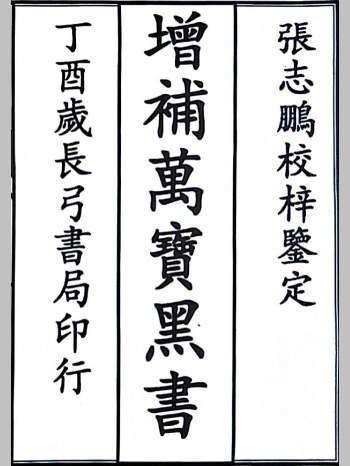 張志鵬校梓鑒定
增補萬寶黑書
丁酉歲長弓書局印行